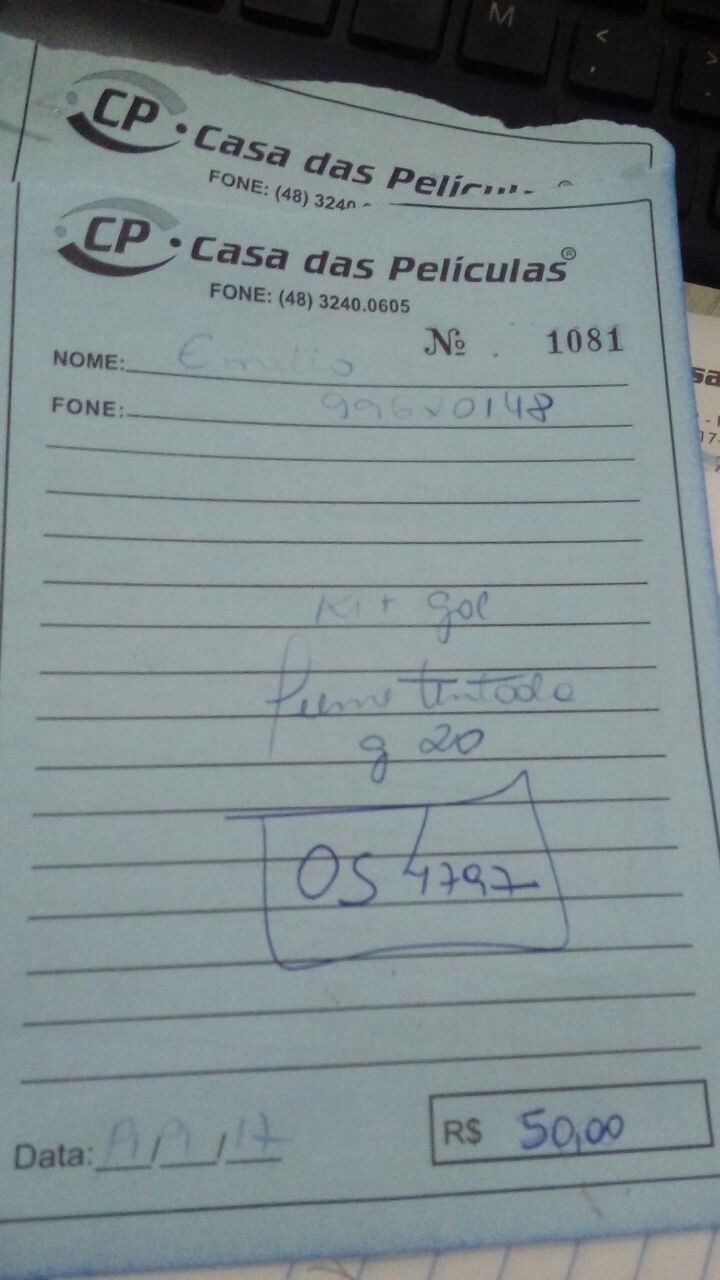 CP · Casa das Pelícu
FONE: (48) 3240
CP · Casa das Películas®
FONE: (48) 3240.0605
Nº 1081
NOME: Emilio
FONE: 99620148
Kit gol
g 20
OS 4797
Data: / / 17
R$ 50,00